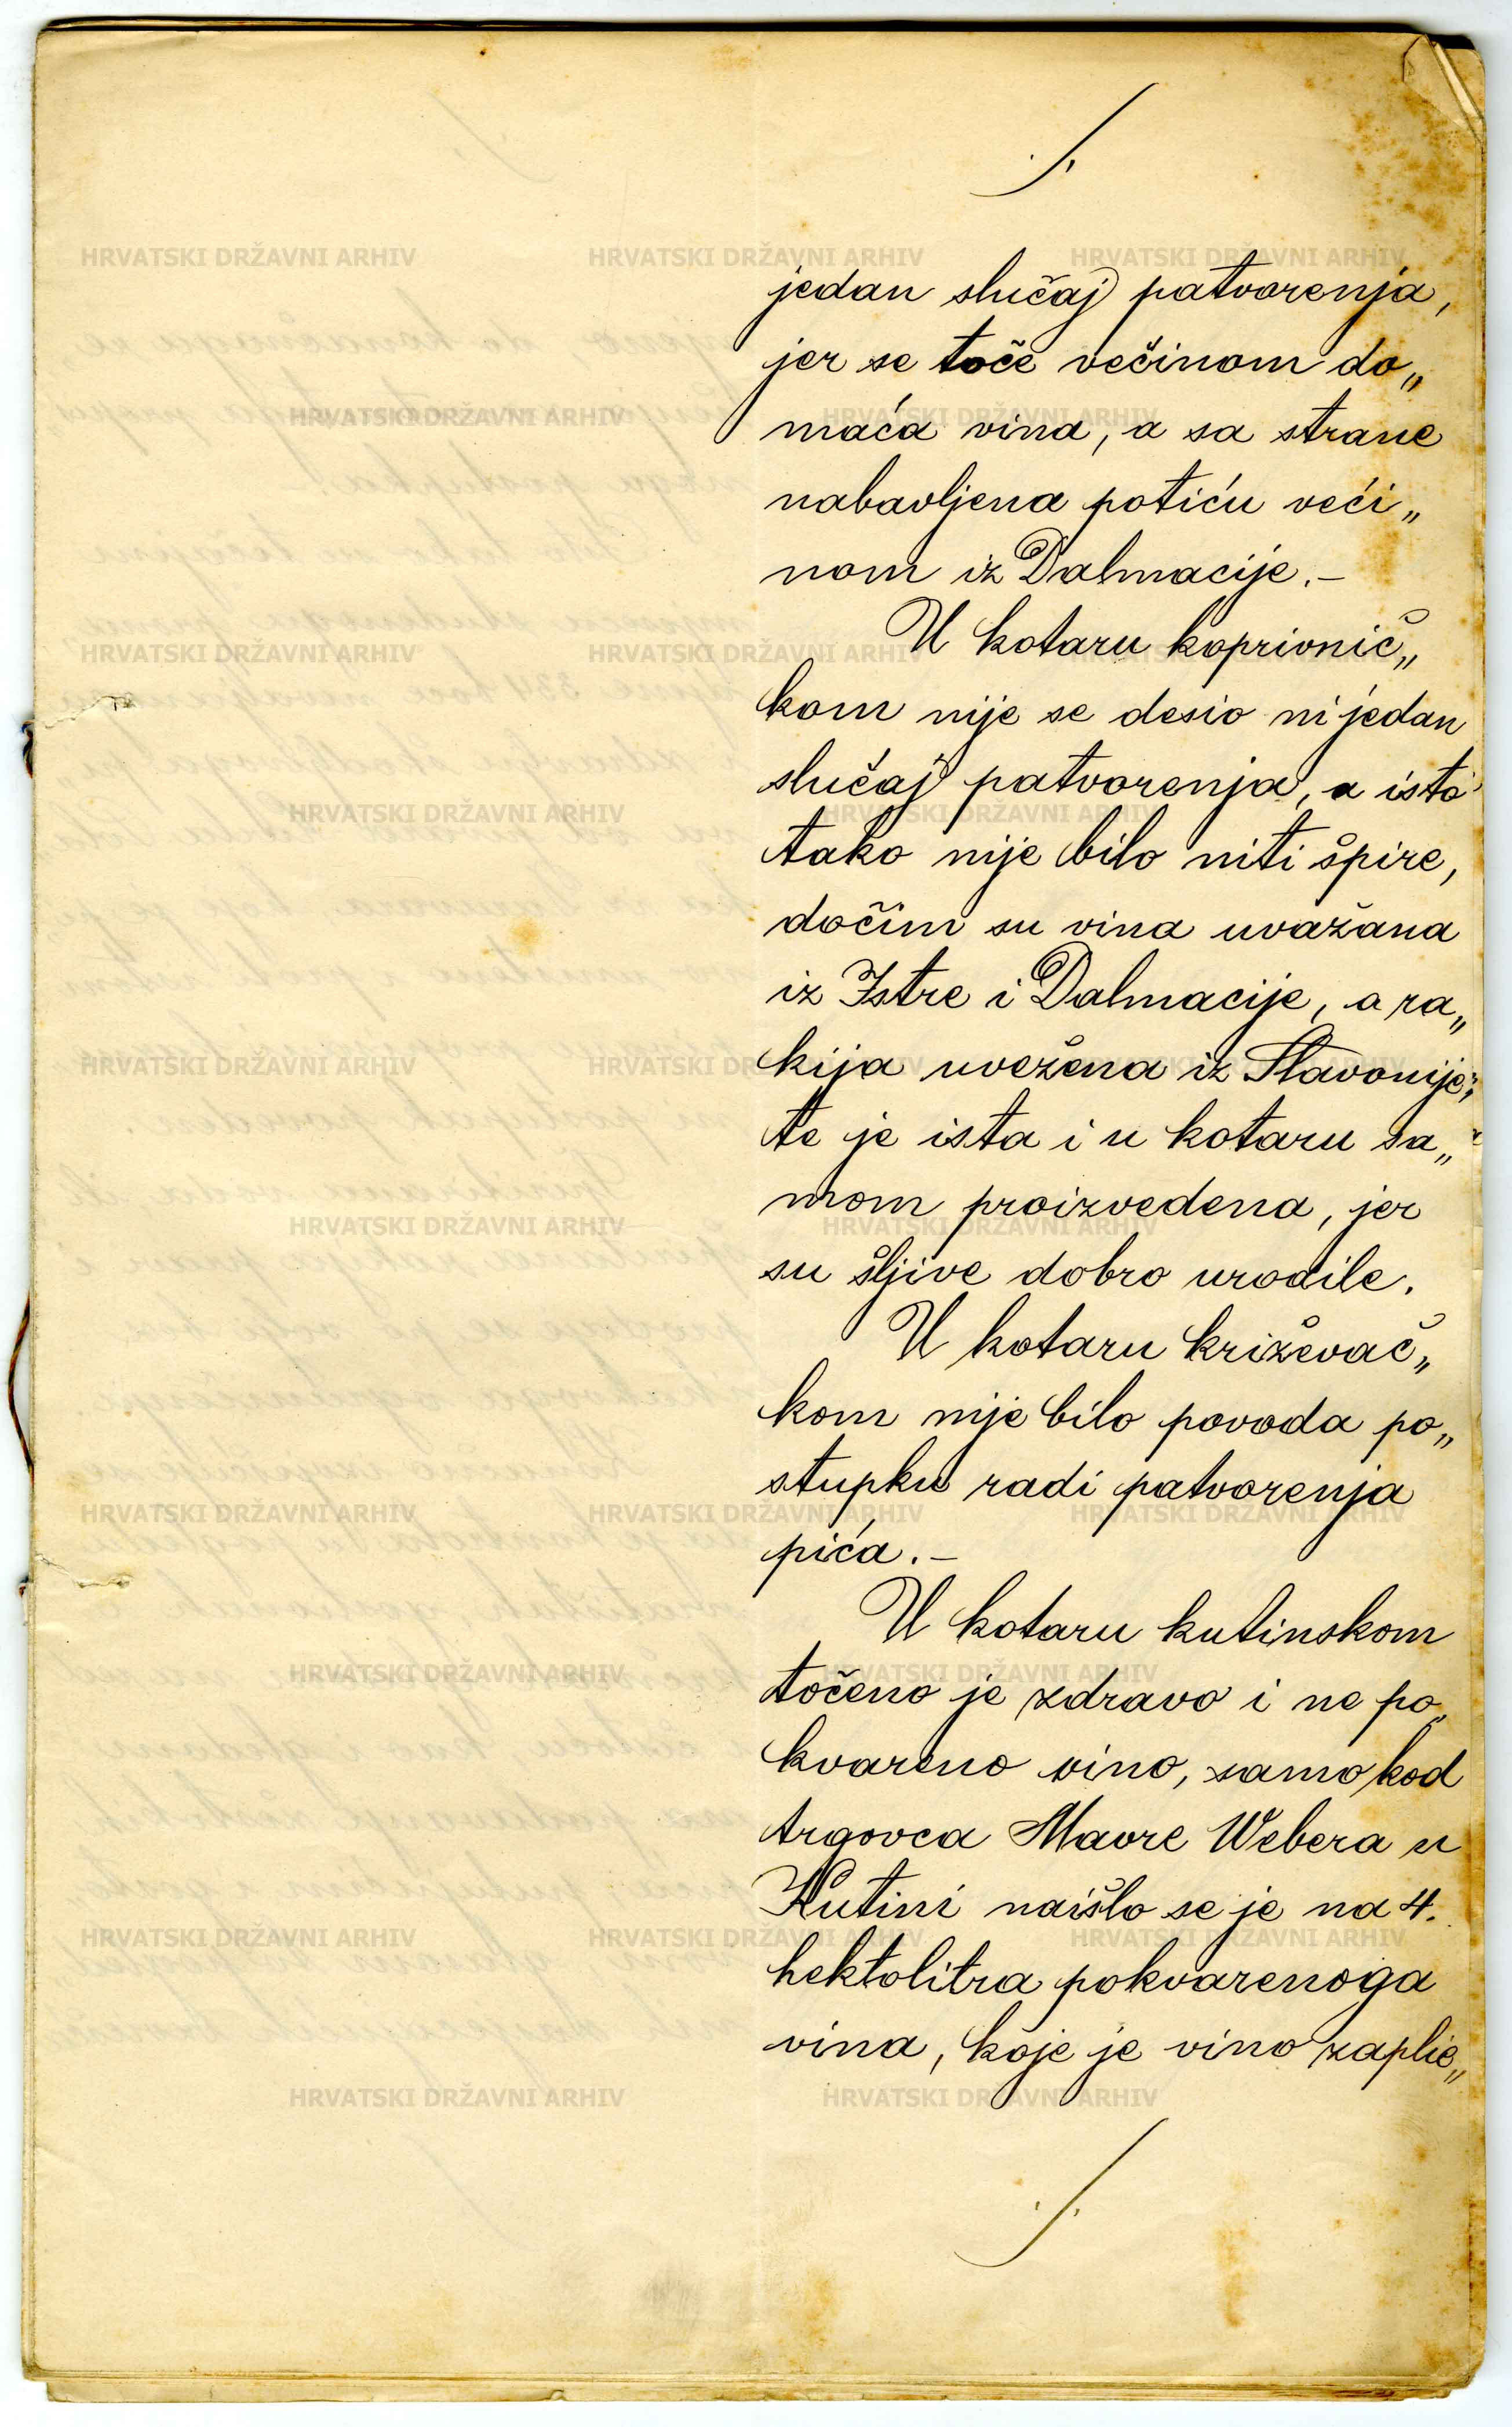 ./.
jedan slučaj patvorenja,
jer se toče večinom do„
maća vina, a sa strane
nabavljena potiću veći„
nom iz Dalmacije.–
U kotaru koprivnič„
kom nije se desio ni jedan
slučaj patvorenja, a isto
tako nije bilo niti špire,
dočim su vina uvažana
iz Istre i Dalmacije, a ra„
kija uvežena iz Slavonije;
te je ista i u kotaru sa„
mom proizvedena, jer
su šljive dobro urodile.
U kotaru križevač„
kom nije bilo povoda po„
stupku radi patvorenja
pića.–
U kotaru kutinskom
točeno je zdravo i ne po„
kvareno vino, samo kod
trgovca Mavre Webera u
Kutini naišlo se je na 4.
hektolitra pokvarenoga
vina, koje je vino zaplie„
./.
HRVATSKI DRŽAVNI ARHIV